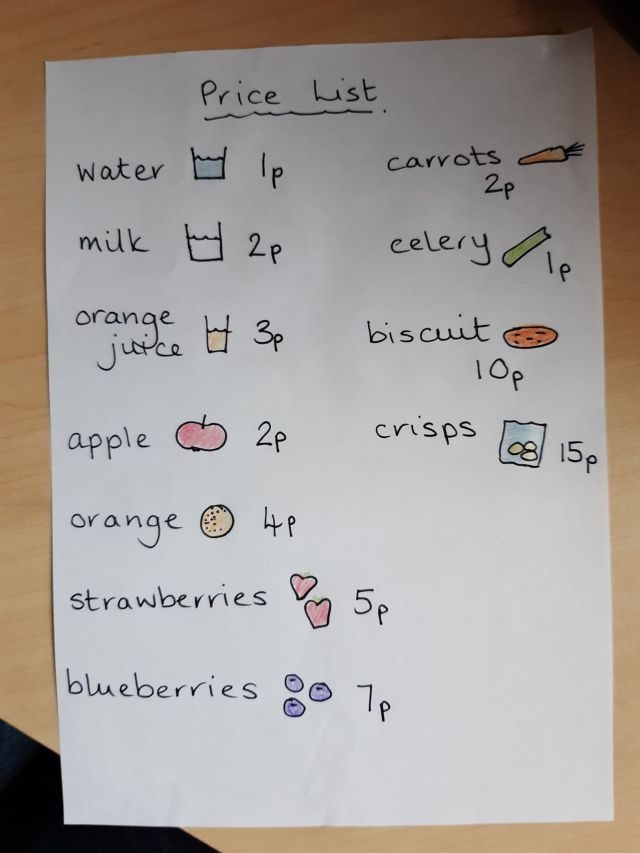 Price List.
water 1p
milk 2p
orange
juice 3p
apple 2p
orange 4p
strawberries 5p
blueberries 7p
carrots
2p
celery
1p
biscuit
10p
crisps
15p